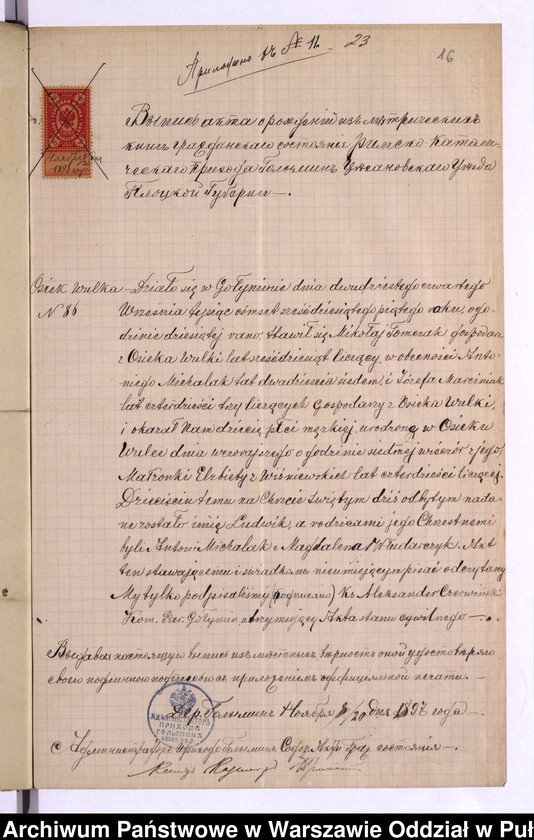 Приложено къ № 16
23
16
Выпись акта о рожденіи изъ метрическихъ
книгъ гражданскаго состоянія Римско-Католи-
ческаго Прихода Голыминъ Цѣхановскаго Уѣзда
Плоцкой Губерніи —.
Ноября
189
Osiek Wulka — Działo się w Gołyminie dnia dwudziestego czwartego
N 86 Września tysiąc ośmset sześćdziesiątego piątego roku, o go-
dzinie dziesiątej rano, stawił się Mikołaj Tomczak gospodarz
z Osieka Wulki lat sześćdziesiąt liczący, w obecności Anto-
niego Michalak lat dwadzieścia siedem, i Józefa Marciniak
lat czterdzieści trzy liczących Gospodarzy z Osieka Wulki,
i okazał Nam dziecię płci męzkiej, urodzone w Osieku
Wulce dnia wczorajszego o godzinie siedmej wieczór z jego
Małżonki Elżbiety z Wiśniewskich lat czterdzieści liczącej.
Dziecięciu temu na Chrzcie świętym dziś odbytym nada-
ne zostało imię Ludwik, a rodzicami jego Chrzestnemi
byli Antoni Michalak i Magdalena Włudarczyk. Akt
ten stawającemu i świadkom nieumiejącym pisać odczytany
My tylko podpisaliśmy (podpisano) Ks Aleksander
Kom. Par. Gołymin, utrzymujący Akta stanu cywilnego —.
Выдавая настоящую выпись изъ мѣстныхъ, вѣрность оной удостовѣряю
своею подлинною подписью съ приложеніемъ оффиціальной печати —.
Дер. Голыминъ Ноября 8/20 дня 1897 года —
АДМИНИСТРАТОРЪ
ПРИХОДА
ГОЛЫМИНЪ
Администраторъ Прихода Голыминъ Содер. Акты Граж. состоянія —.
Ксендзъ
Archiwum Państwowe w Warszawie Oddział w Puł